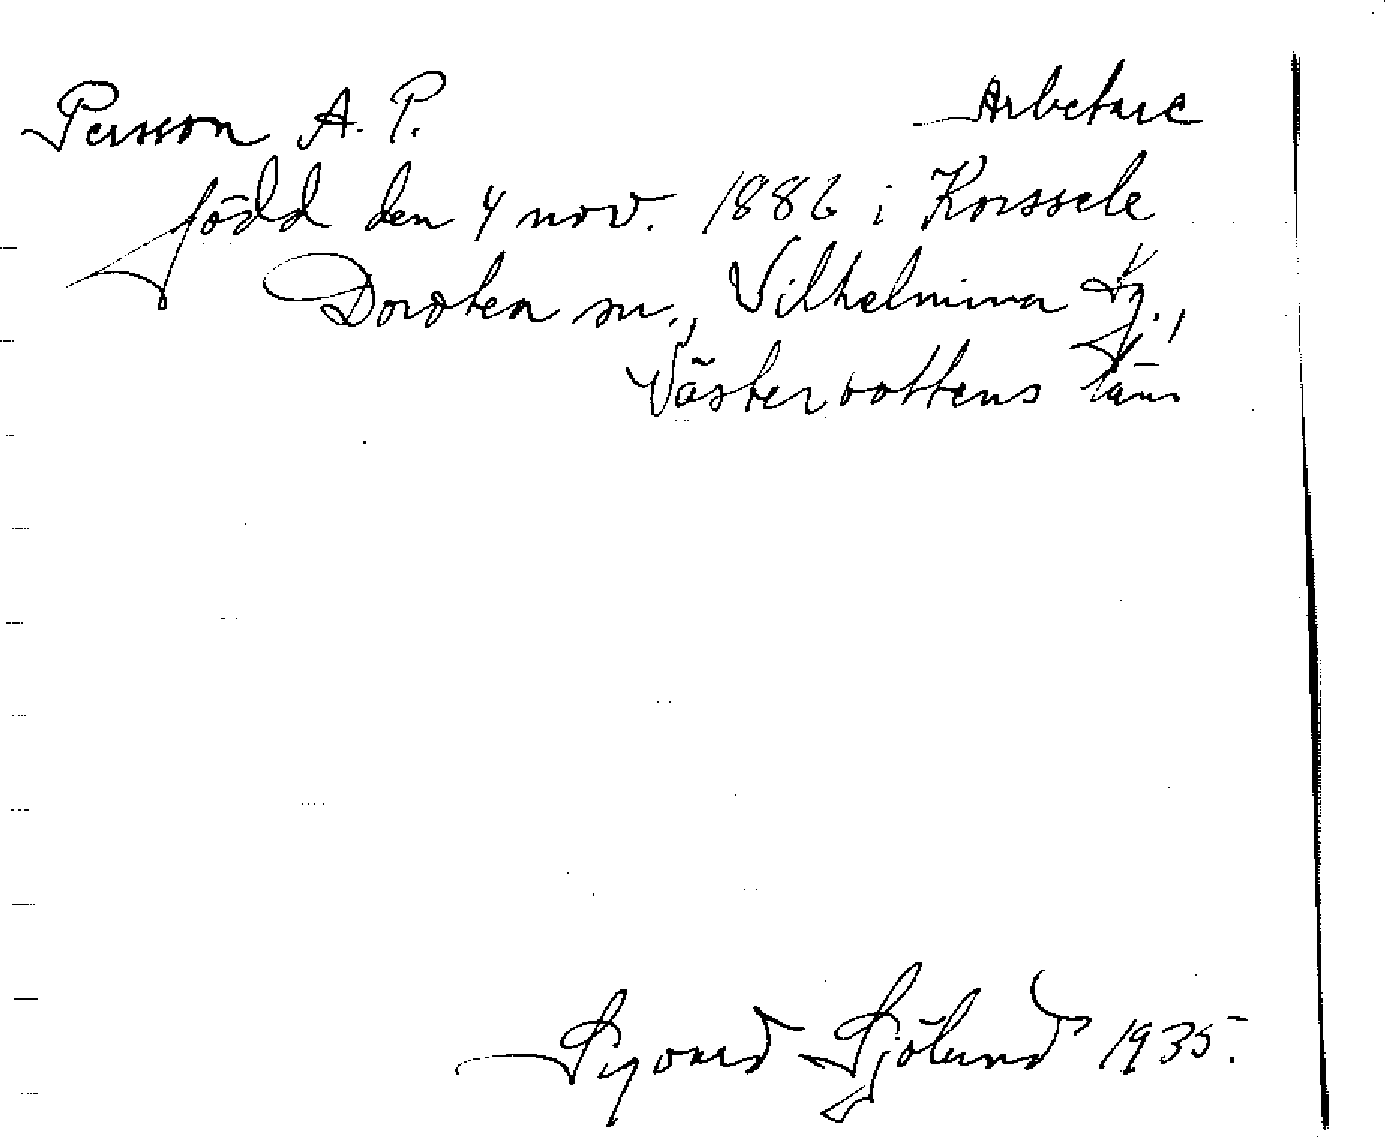 Persson A. P. Arbetare
född den 4 nov. 1886 i Korssele
Dorotea sn., Vilhelmina tg.,
Västerbottens län
Sigvard Sjölund 1935.